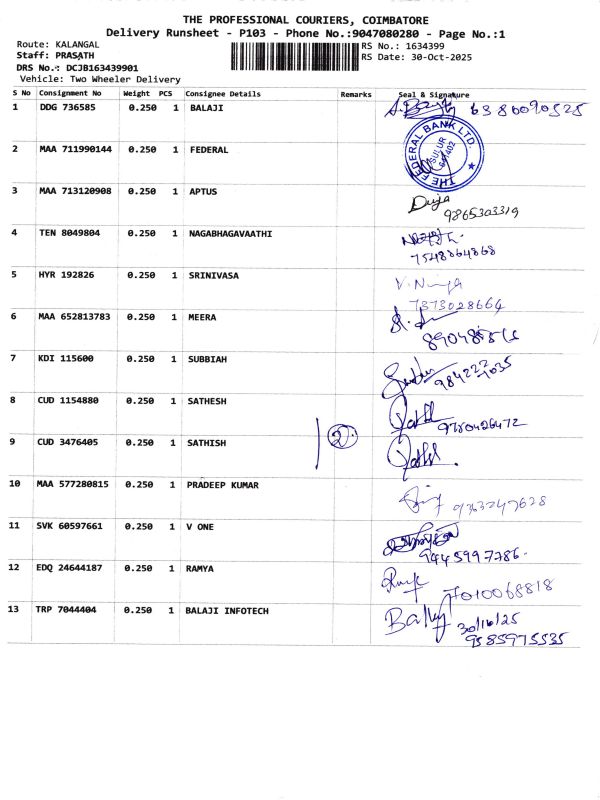 THE PROFESSIONAL COURIERS, COIMBATORE
Delivery Runsheet - P103 - Phone No.:9047080280 - Page No.:1
Route: KALANGAL
RS No.: 1634399
Staff: PRASATH
RS Date: 30-Oct-2025
DRS No.: DCJB163439901
Vehicle: Two Wheeler Delivery
S No Consignment No Weight PCS Consignee Details Remarks Seal & Signature
1 DDG 736585 0.250 1 BALAJI 6380090525
2 MAA 711990144 0.250 1 FEDERAL
THE FEDERAL BANK LTD.
SULUR
641402
3 MAA 713120908 0.250 1 APTUS
9865303319
4 TEN 8049804 0.250 1 NAGABHAGAVAATHI
7548864868
5 HYR 192826 0.250 1 SRINIVASA
7373028664
6 MAA 652813783 0.250 1 MEERA
7 KDI 115600 0.250 1 SUBBIAH
8 CUD 1154880 0.250 1 SATHESH
9780426472
9 CUD 3476405 0.250 1 SATHISH 2
10 MAA 577280815 0.250 1 PRADEEP KUMAR
9363247628
11 SVK 60597661 0.250 1 V ONE
9445997786.
12 EDQ 24644187 0.250 1 RAMYA
7010068818
13 TRP 7044404 0.250 1 BALAJI INFOTECH
30/10/25
9585975535